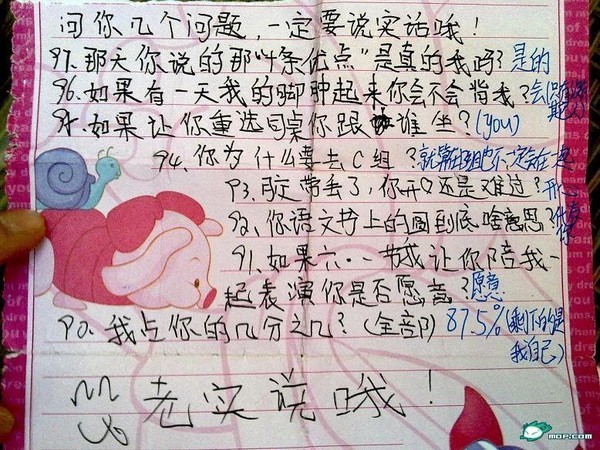 问你几个问题,一定要说实话哦!
97.那天你说的那“十条优点”是真的我吗?是的
96.如果有一天我的脚肿起来你会不会背我?会
95.如果让你重选同桌你跟谁坐?(you)
94.你为什么要去C组?就算在B组也不一定会在一块
93.胶带丢了,你开心还是难过?开心
92.你语文书上的圆到底啥意思?代表你
91.如果六·一节我让你陪我一
起表演你是否愿意?愿意
90.我占你的几分之几?(全部) 87.5%(剩下的是
我自己)
老实说哦!
MOP.COM